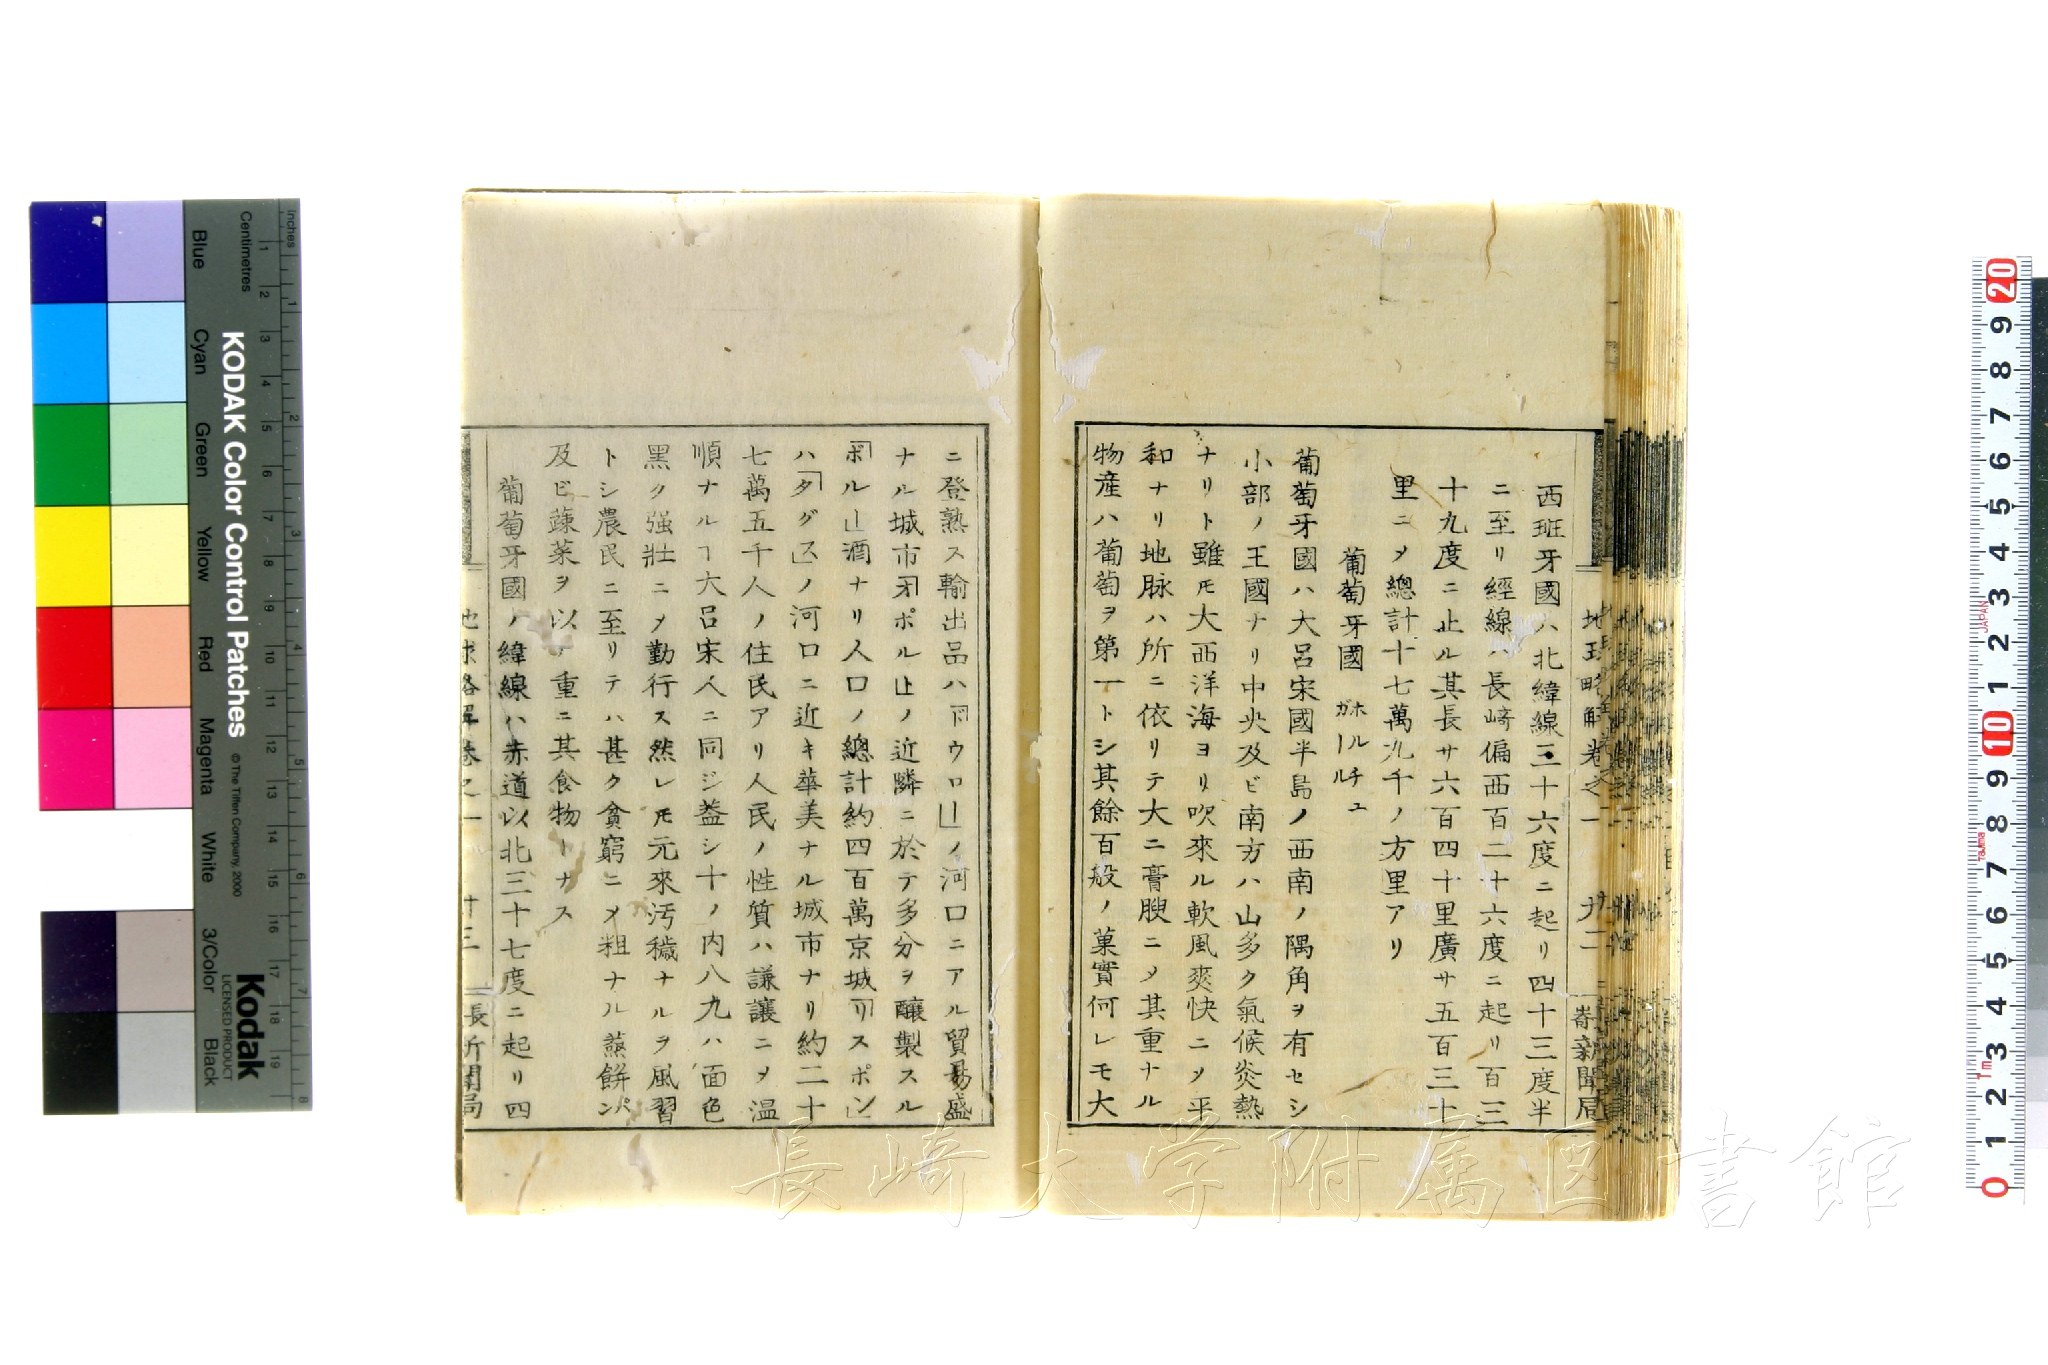 西班牙國ハ北緯線三十六度ニ起リ四十三度半
ニ至リ經線ハ長崎偏西百二十六度ニ起リ百三
十九度ニ止ル其長サ六百四十里廣サ五百三十
里ニメ總計十七萬九千ノ方里アリ
葡萄牙國 ホルチュガール
葡萄牙國ハ大呂宋國半島ノ西南ノ隅角ヲ有セシ
小部ノ王國ナリ中央及ビ南方ハ山多ク氣候炎熱
ナリト雖モ大西洋海ヨリ吹來ル軟風爽快ニメ平
和ナリ地脉ハ所ニ依リテ大ニ膏腴ニメ其重ナル
物産ハ葡萄ヲ第一トシ其餘百般ノ菓實何レモ大
ニ登熟ス輸出品ハ「ドウロ」ノ河口ニアル貿易盛
ナル城市「オポルト」ノ近隣ニ於テ多分ヲ釀製スル
「ポルト」酒ナリ人口ノ總計約四百萬京城「リスボン」
ハ「タグス」ノ河口ニ近キ華美ナル城市ナリ約二十
七萬五千人ノ住民アリ人民ノ性質ハ謙讓ニメ温
順ナルヿ大呂宋人ニ同ジ蓋シ十ノ内八九ハ面色
黑ク强壯ニメ勤行ス然レモ元來汚穢ナルヲ風習
トシ農民ニ至リテハ甚ク貧窮ニメ粗ナル蒸餅パン
及ビ蔬菜ヲ以 重ニ其食物トナス
葡萄牙國ノ緯線ハ赤道以北三十七度ニ起リ四
地球略解卷之一 廿二 崎新聞局
地球略解卷之一 廿三 長 新聞局
長崎大学附属図書館
KODAK Color Control Patches
© The Tiffen Company, 2000
Kodak
LICENSED PRODUCT
Inches
Centimetres
Blue
Cyan
Green
Yellow
Red
Magenta
White
3/Color
Black
JAPAN
Tajima
1m